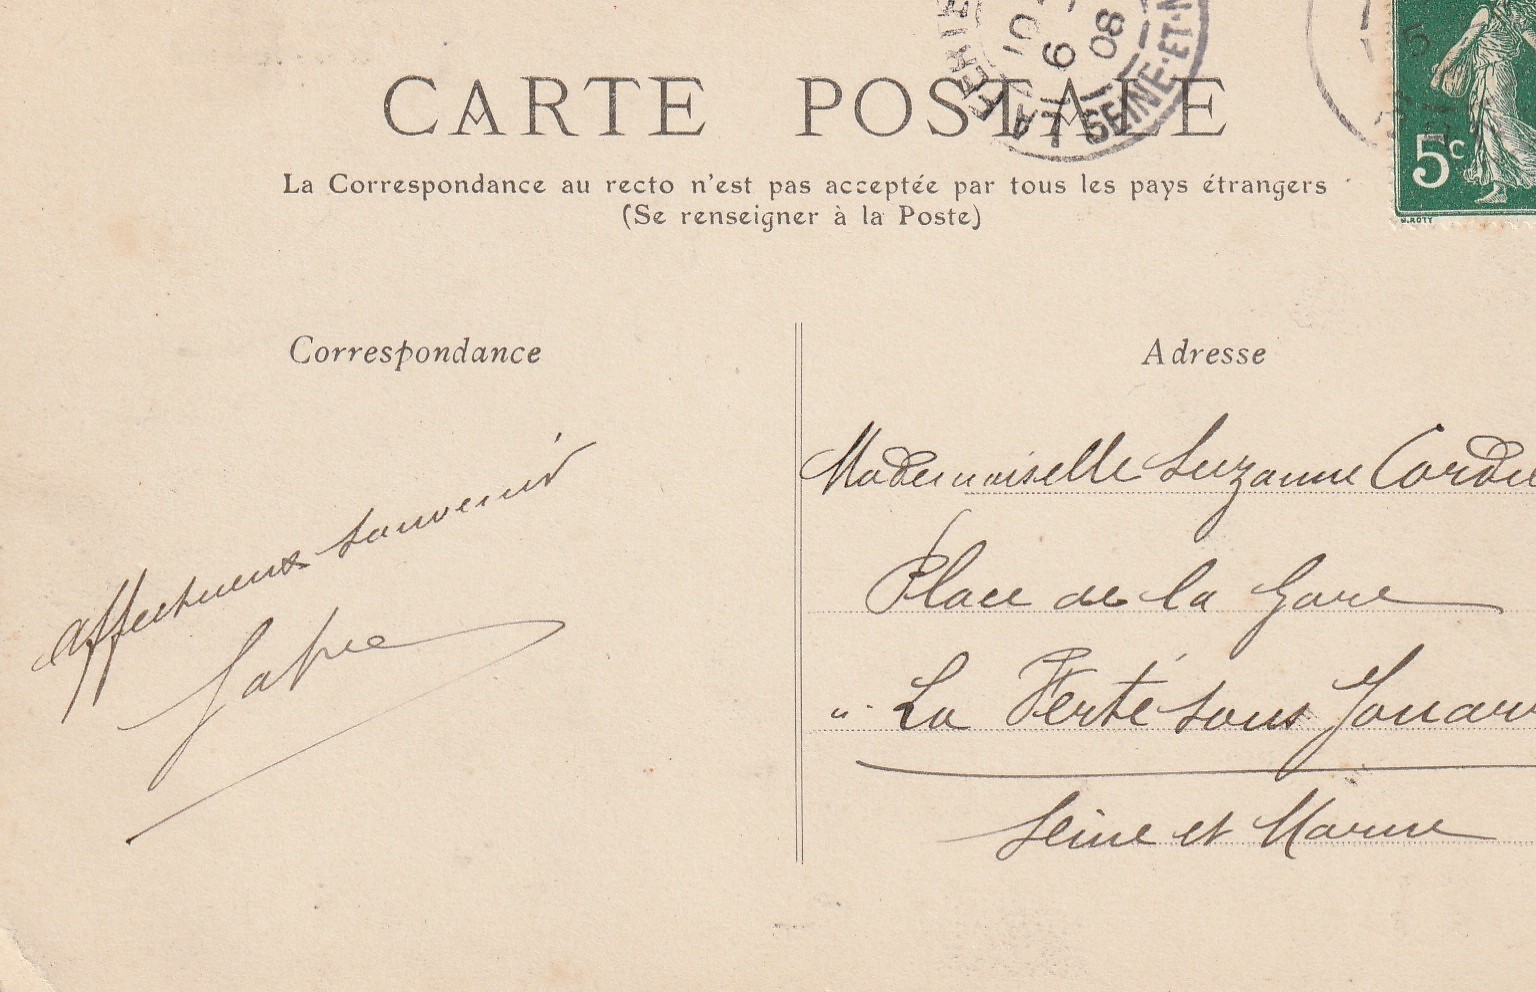 CARTE POSTALE
La Correspondance au recto n'est pas acceptée par tous les pays étrangers
(Se renseigner à la Poste)
LA FERTE
10
6
08
SEINE-ET-M
5c
Correspondance
Adresse
affectueux souvenir
Mademoiselle Suzanne
Place de la Gare
La Ferté sous Jouarr
Seine et Marne